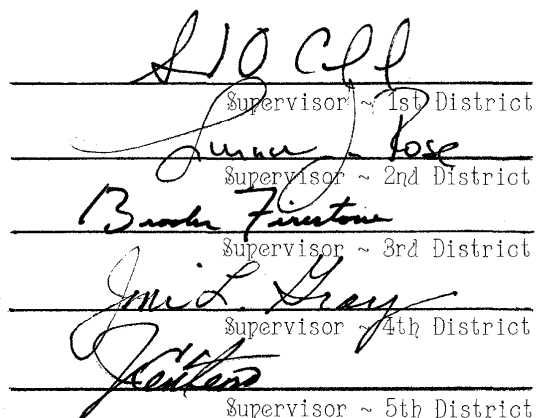 Supervisor ~ 1st District
Susan J. Rose
Supervisor ~ 2nd District
Brooks Firestone
Supervisor ~ 3rd District
Joni L. Gray
Supervisor ~ 4th District
J Centeno
Supervisor ~ 5th District